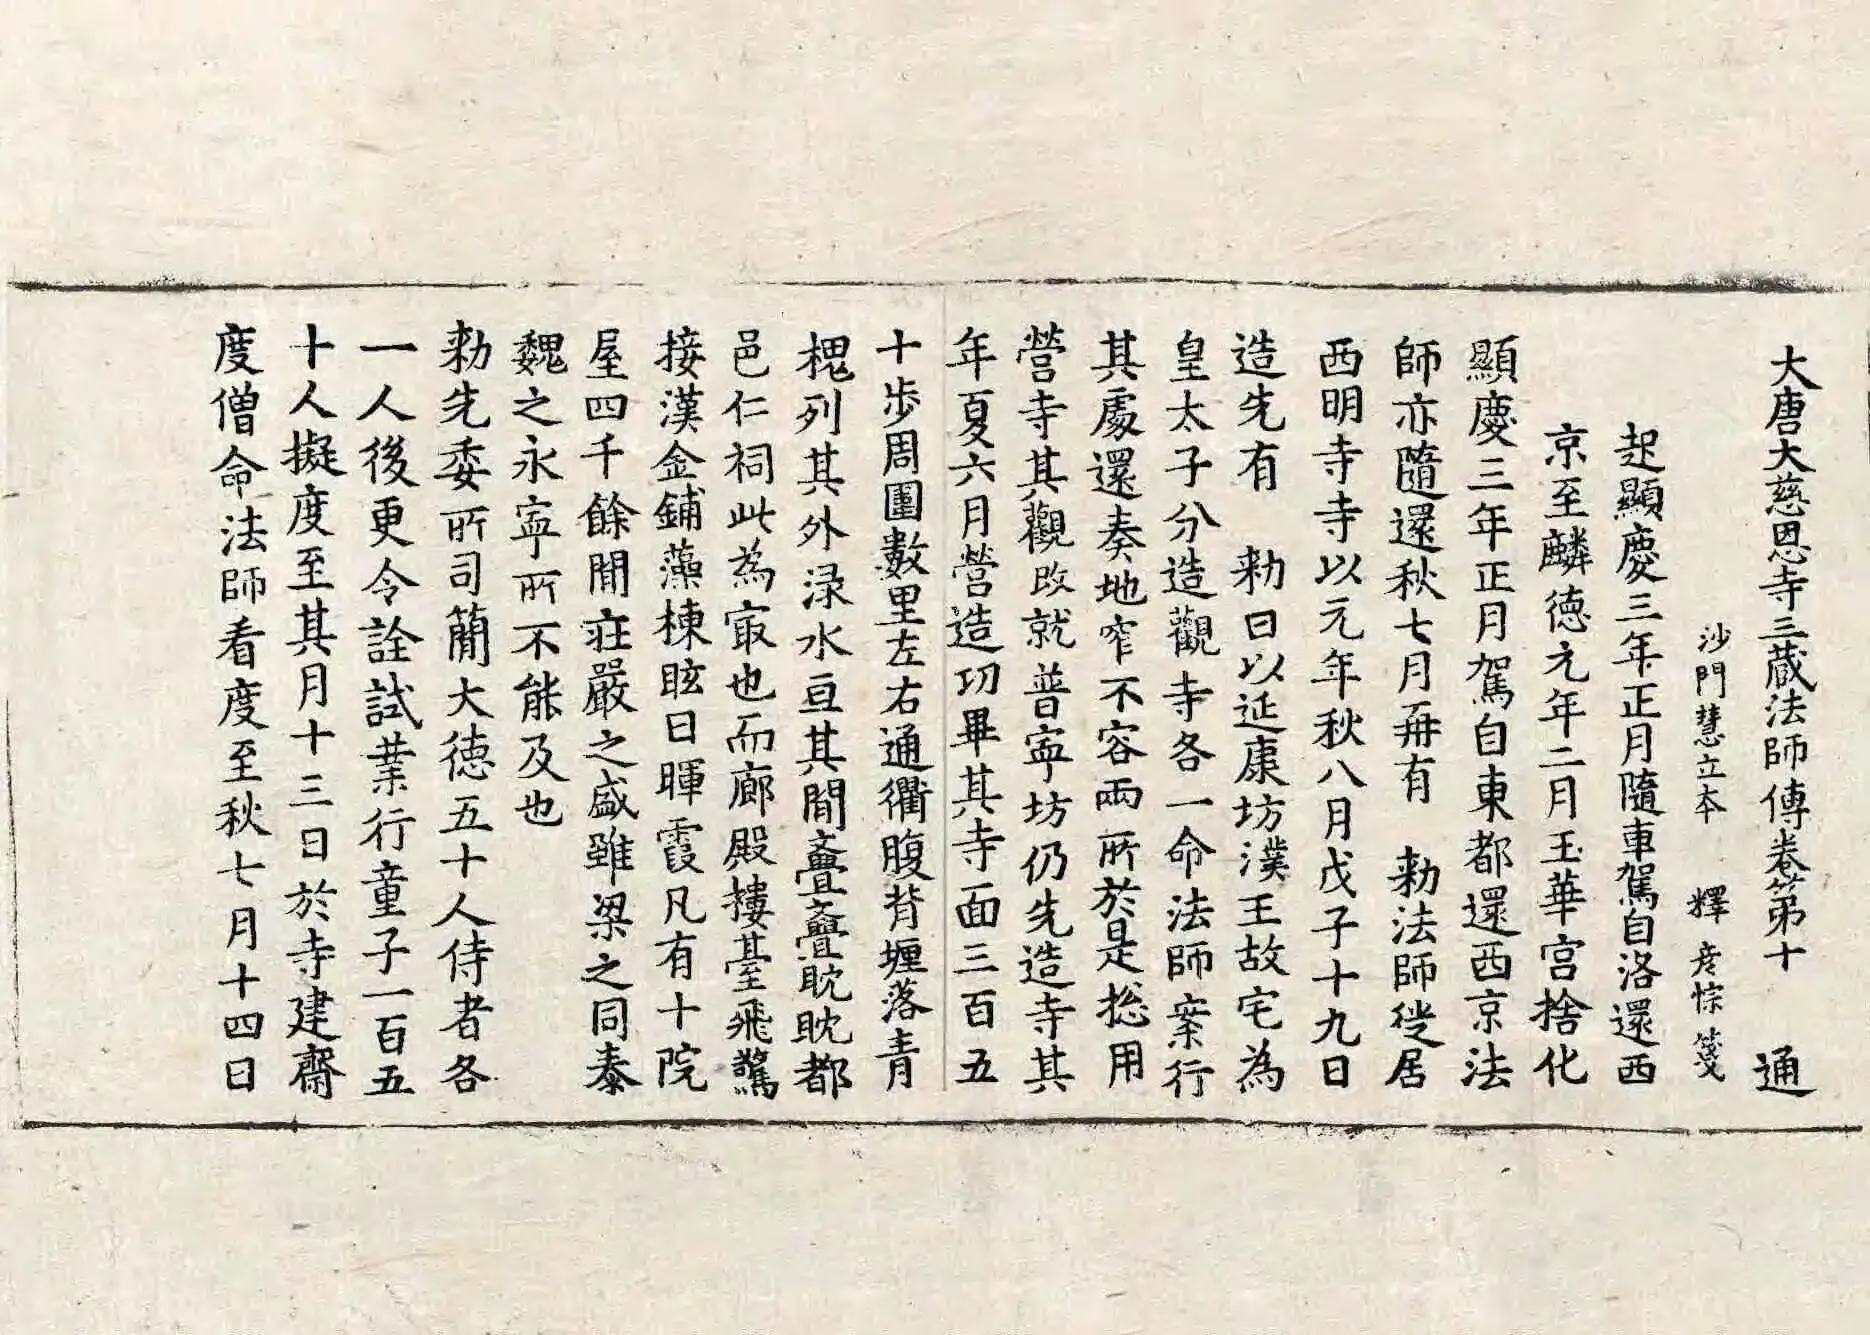 大唐大慈恩寺三藏法師傳卷第十 通
沙門慧立本 釋彦悰箋
起顯慶三年正月隨車駕自洛還西
京至麟德元年二月玉華宮捨化
顯慶三年正月駕自東都還西京法
師亦隨還秋七月再有 勑法師徙居
西明寺寺以元年秋八月戊子十九日
造先有 勑曰以延康坊濮王故宅為
皇太子分造觀寺各一命法師案行
其處還奏地窄不容兩所於是揔用
營寺其觀改就普寧坊仍先造寺其
年夏六月營造功畢其寺面三百五
十步周圍數里左右通衢腹背壥落青
槐列其外淥水亘其閒亹亹耽耽都
邑仁祠此為冣也而廊殿樓臺飛驚
接漢金鋪藻棟眩日暉霞凡有十院
屋四千餘閒莊嚴之盛雖梁之同泰
魏之永寧所不能及也
勑先委所司簡大德五十人侍者各
一人後更令詮試業行童子一百五
十人擬度至其月十三日於寺建齋
度僧命法師看度至秋七月十四日